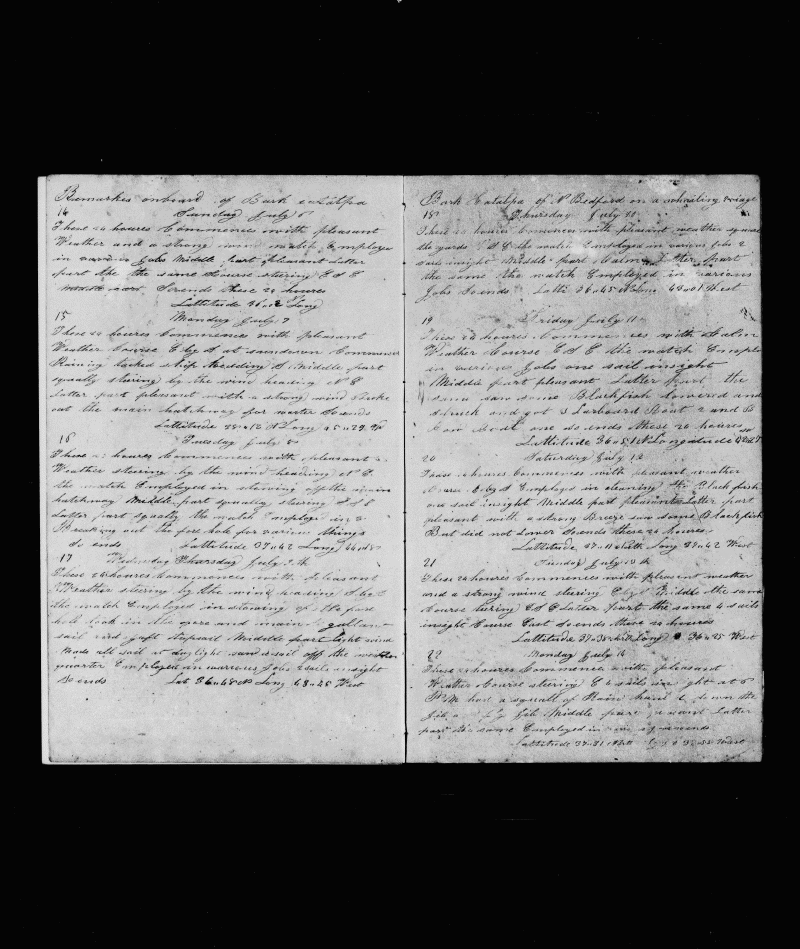 Remarkes onboard of Bark Catalpa
14 Sunday July 6
These 24 houres Commences with pleasant
Weather and a strong wind watch Employed
in various Jobs Middle part pleasant Latter
part the the same Course steering E S E
So ends these 24 houres
Lattitude Long
15 Monday July 7
These 24 houres Commences with pleasant
Weather Course E by S at sundown Commenced
Raining tacked ship heading S Middle part
squally stering by the wind heading
Latter part pleasant with a strong wind Broke
out the main hatchway for warter So ends
Lattitude Long
16 Tuesday July 8
These 24 houres Commences with pleasant
Weather steering by the wind heading
the watch Employed in stowing off the main
hatchway Middle part squally steering E S E
Latter part squally the watch Employed in
Breaking out the fore hole for various things
So ends Lattitude 37 42 Long
17 Wednesday Thursday July 9th
These 24 houres Commences with pleasant
Weather steering by the wind heading S by E
the watch Employed in stowing of the fore
hole took in the fore and main gallant
sail and gaft topsail Middle part light wind
Made all sail at daylight saw a sail off the weather
quarter Employed in various Jobs 2 sails insight
So ends Lat 36 48 N Long 43 25 West
Bark Catalpa of N Bedford on a whailing voiage
18 Thursday July
These 24 houres Comences with pleasant weather square
the yards E S E the watch Employed in various Jobs 2
sails insight Middle part Calm Latter part
the same the watch Employed in various
Jobs So ends Latti 36 45 N Long 43 01 West
19 Friday July 11
These 24 houres Commences with Calm
Weather Course E S E the watch Employed
in various Jobs one sail insight
Middle part pleasant Latter part the
same saw some Blackfish Lowered and
struck and got 3 Larboard Boat 2 and B
Bow Boat one So ends these 24 houres
Lattitude 36 51 N Longatude
20 Saturday July 12
These 24 houres Commences with pleasant weather
Course E by S Employed in cleaning the Black fish
one sail insight Middle part pleasant Latter part
pleasant with a strong Breeze saw some Blackfish
But did not Lower So ends these 24 houres
Lattitude 37 11 North Long 39 42 West
21 Sunday July 13th
These 24 houres Commences with pleasent weather
and a strong wind stering E by S Middle the same
Course stering E S E Latter part the same 4 sails
insight Course East So ends these 24 houres
Lattitude 37 35 North Long 36 25 West
22 Monday July 14
These 24 houres Commences with pleasant
Weather Course steering E 4 sails insight at 6
P M had a squall of Rain haul down the
Jib and fly Jib Middle part pleasant Latter
part the same Employed in So ends
Lattitude 37 31 North Long West